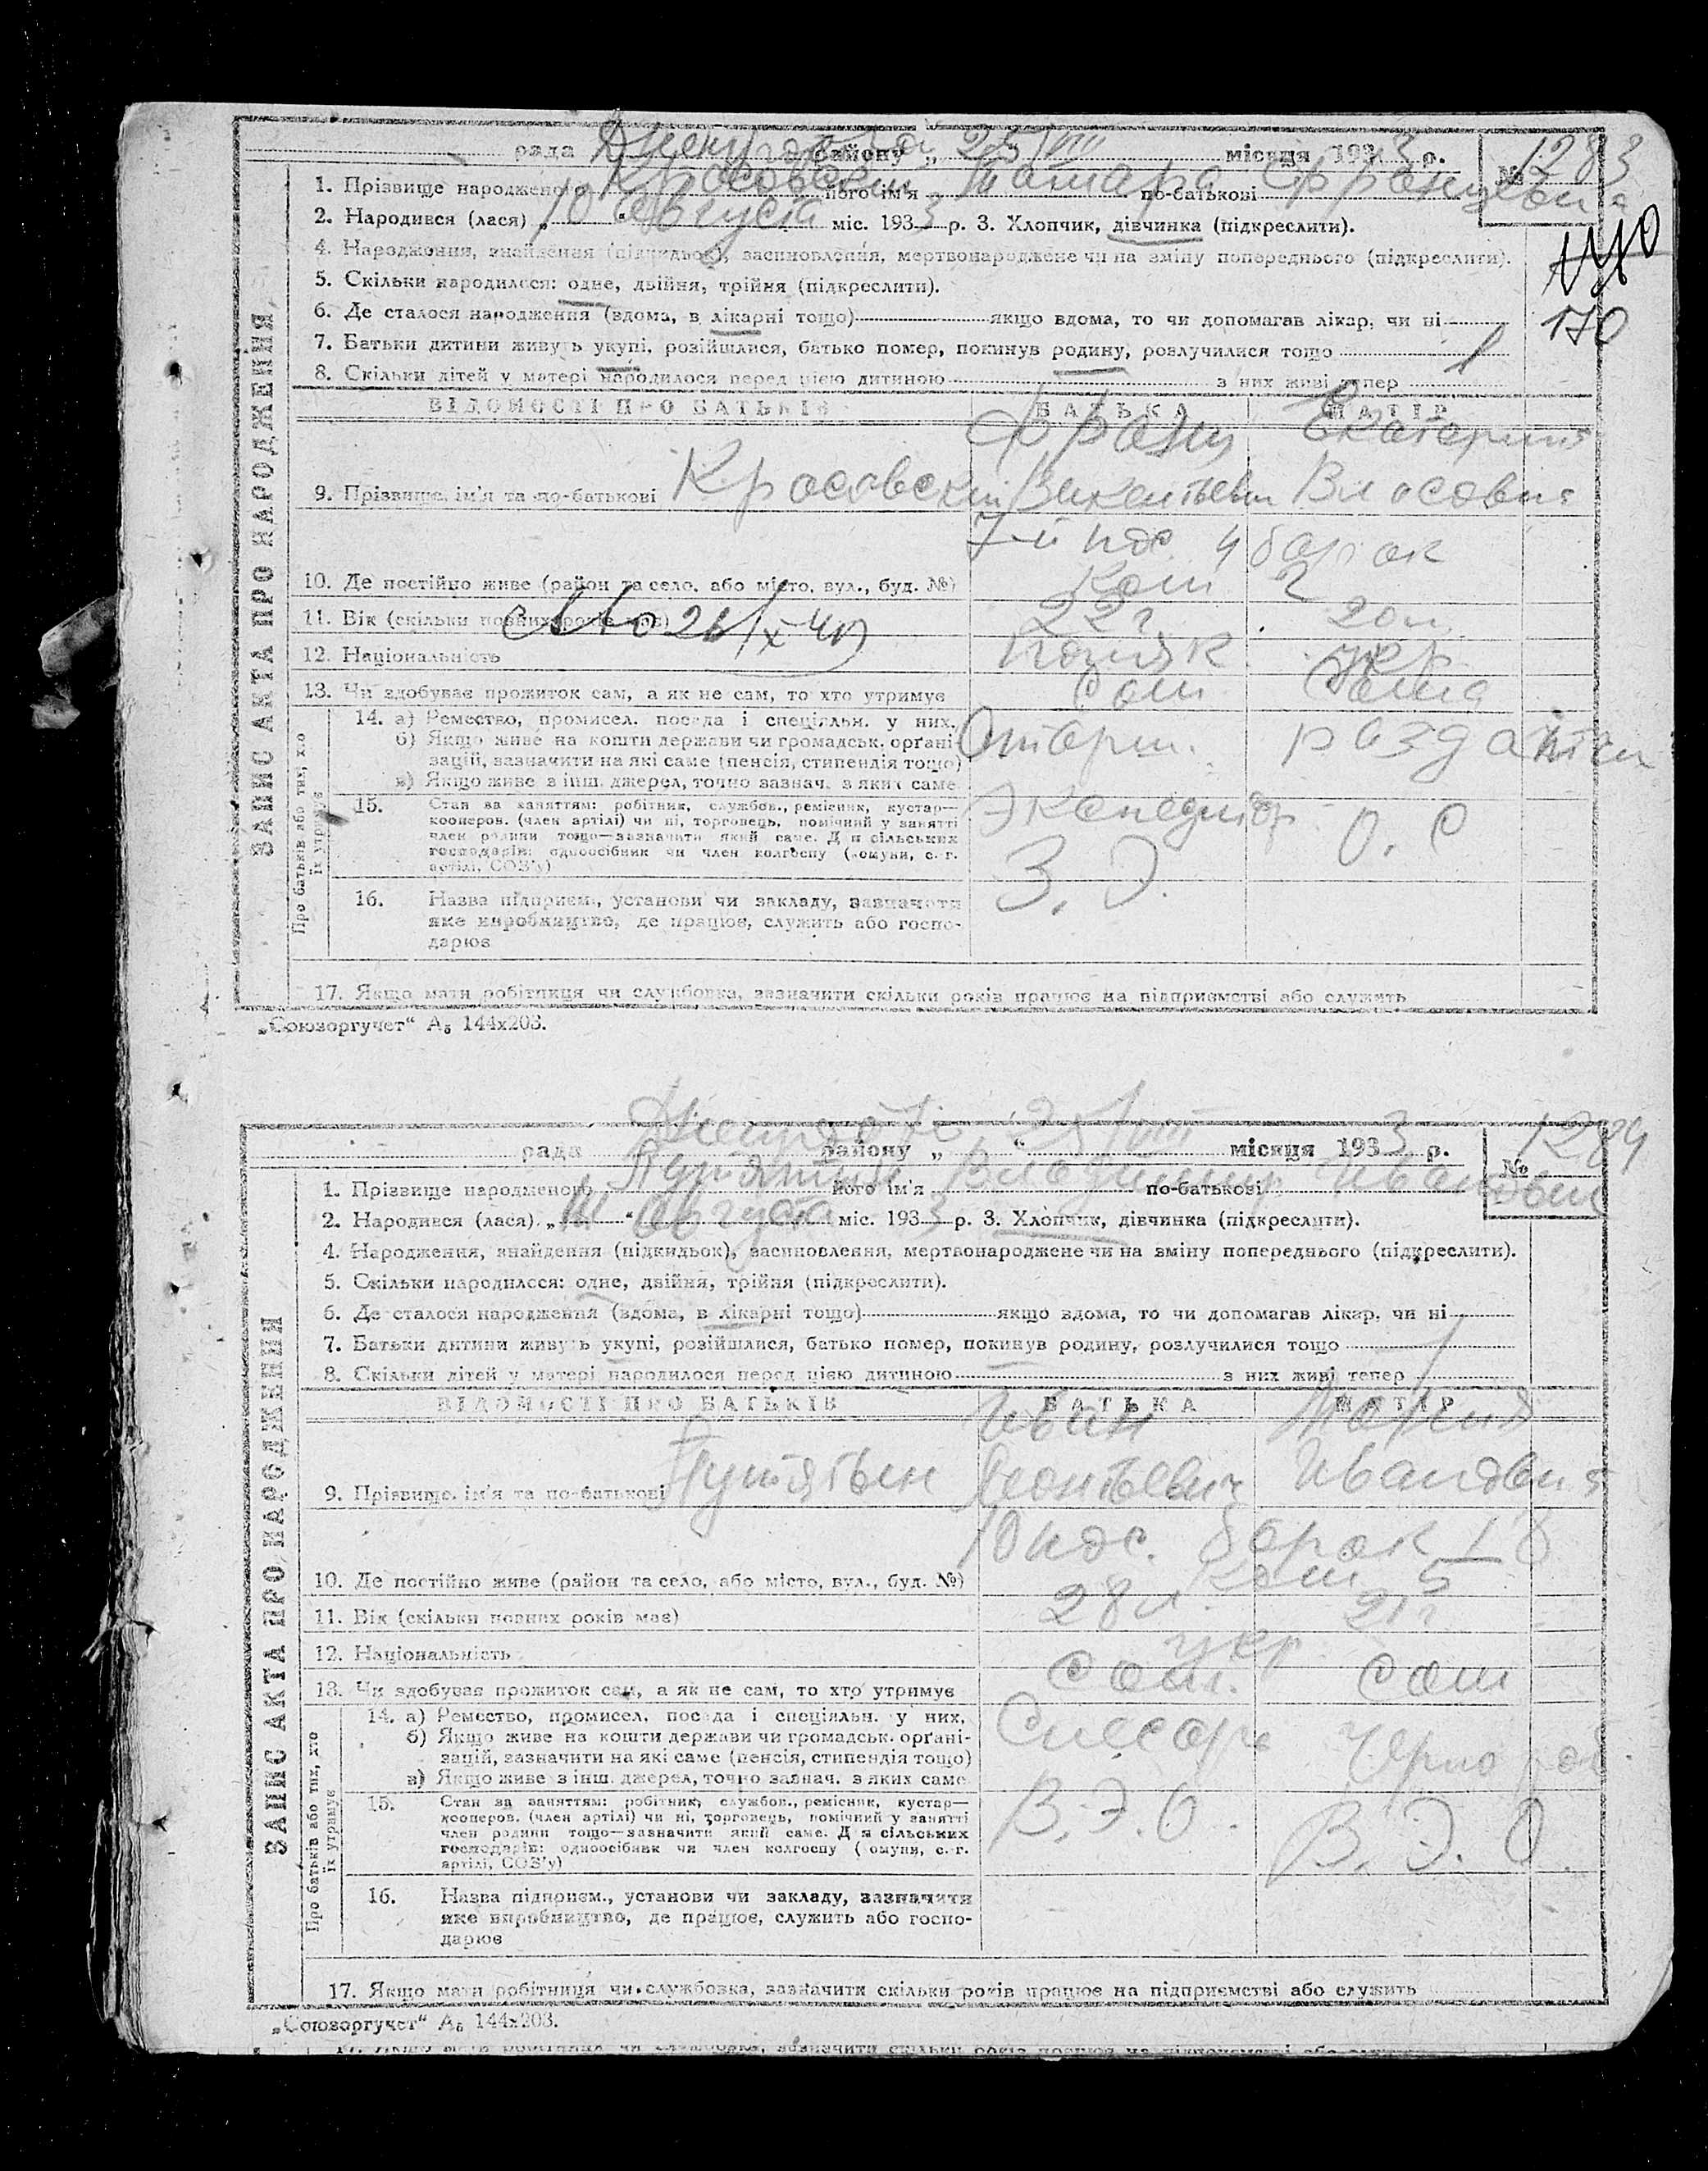 рада району „ 25/VIII місяця 1933 р. № 1283
1. Прізвище народженого Красовская його ім'я Тамара по-батькові Францовна
2. Народився (лася) „10" августа міс. 1933 р. 3. Хлопчик, дівчинка (підкреслити).
4. Народження, знайдення (підкидьок), засиновлення, мертвонароджене чи на зміну попереднього (підкреслити).
170
5. Скільки народилося: одне, двійня, трійня (підкреслити).
6. Де сталося народження (вдома, в лікарні тощо) якщо вдома, то чи допомагав лікар, чи ні
170
7. Батьки дитини живуть укупі, розійшлися, батько помер, покинув родину, розлучилися тощо
8. Скільки дітей у матері народилося перед цією дитиною з них живі тепер 1
ВІДОМОСТІ ПРО БАТЬКІВ БАТЬКА МАТІР
Франц Екатерина
9. Прізвище, ім'я та по-батькові Красовский Викентьевич Власовна
7-й пос. 4 барак
10. Де постійно живе (район та село, або місто, вул., буд. №) ком 2
11. Вік (скільки повних років має) 22 г. 20 л.
12. Національність поляк укр
13. Чи здобуває прожиток сам, а як не сам, то хто утримує сам сама
14. а) Ремество, промисел, посада і спеціяльн. у них.
б) Якщо живе на кошти держави чи громадськ. орґані-
зацій, зазначити на які саме (пенсія, стипендія тощо)
в) Якщо живе з інш. джерел, точно зазнач. з яких саме
15. Стан за заняттям: робітник, службов., ремісник, кустар—
кооперов. (член артілі) чи ні, торговець, помічний у занятті
член родини тощо—зазначити який саме. Для сільських
господарів: одноосібник чи член колгоспу (комуни, с.-г.
артілі, СОЗ'у)
О. С
З. Э.
16. Назва підприєм., установи чи закладу, зазначити
яке виробництво, де працює, служить або госпо-
дарює
17. Якщо мати робітниця чи службовка, зазначити скільки років працює на підприємстві або служить
ЗАПИС АКТА ПРО НАРОДЖЕННЯ
Про батьків або тих, хто
їх утримує
„Союзоргучет" А₅ 144х203.
рада району „ 25/VIII " місяця 1933 р. № 1284
1. Прізвище народженого Путятын його ім'я Владимир по-батькові Иванович
2. Народився (лася) „ " августа міс. 1933 р. 3. Хлопчик, дівчинка (підкреслити).
4. Народження, знайдення (підкидьок), засиновлення, мертвонароджене чи на зміну попереднього (підкреслити).
5. Скільки народилося: одне, двійня, трійня (підкреслити).
6. Де сталося народження (вдома, в лікарні тощо) якщо вдома, то чи допомагав лікар, чи ні
7. Батьки дитини живуть укупі, розійшлися, батько помер, покинув родину, розлучилися тощо
8. Скільки дітей у матері народилося перед цією дитиною з них живі тепер 1
ВІДОМОСТІ ПРО БАТЬКІВ БАТЬКА МАТІР
Иван Мария
9. Прізвище, ім'я та по-батькові Путятын Леонтьевич Ивановна
10 пос. барак 18
10. Де постійно живе (район та село, або місто, вул., буд. №) ком 5
11. Вік (скільки повних років має) 28 л. 21 г
12. Національність укр
13. Чи здобуває прожиток сам, а як не сам, то хто утримує сам. сам
14. а) Ремество, промисел, посада і спеціяльн. у них. Слесарь
б) Якщо живе на кошти держави чи громадськ. орґані- Черно раб.
зацій, зазначити на які саме (пенсія, стипендія тощо)
в) Якщо живе з інш. джерел, точно зазнач. з яких саме
15. Стан за заняттям: робітник, службов., ремісник, кустар— В. Э. О. В. Э. О.
кооперов. (член артілі) чи ні, торговець, помічний у занятті
член родини тощо—зазначити який саме. Для сільських
господарів: одноосібник чи член колгоспу (комуни, с.-г.
артілі, СОЗ'у)
16. Назва підприєм., установи чи закладу, зазначити
яке виробництво, де працює, служить або госпо-
дарює
17. Якщо мати робітниця чи службовка, зазначити скільки років працює на підприємстві або служить
ЗАПИС АКТА ПРО НАРОДЖЕННЯ
Про батьків або тих, хто
їх утримує
„Союзоргучет" А₅ 144х203.